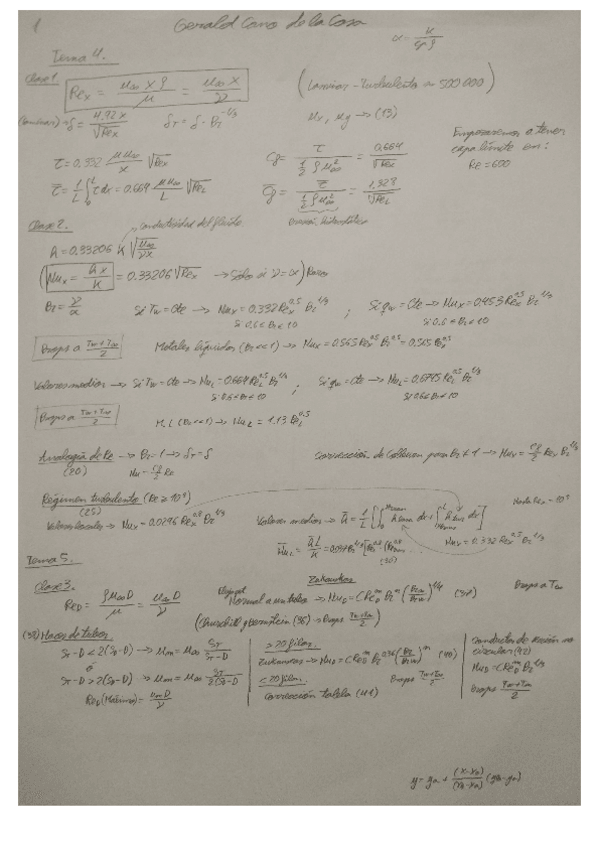 1 Gerald Cano de la Casa
α = k / (Cp ρ)
Tema 4.
Clase 1
Re_x = u∞ x ρ / μ = u∞ x / ν
(Laminar - Turbulento ~ 500 000)
(Laminar) → δ = 4.92 x / √Re_x
δ_T = δ · Pr^(-1/3)
u_x, u_y → (13)
Empezaremos a tener capa límite en:
Re = 600
τ = 0.332 (μ u∞ / x) √Re_x
C_f = τ / (½ ρ u∞²) = 0.664 / √Re_x
τ̄ = 1/L ∫₀ᴸ τ dx = 0.664 (μ u∞ / L) √Re_L
C̄_f = τ̄ / (½ ρ u∞²) = 1.328 / √Re_L
Clase 2.
conductividad del fluido
h = 0.33206 k √(u∞ / νx)
(Nu_x = h x / k = 0.33206 √Re_x → Sólo si ν = α) Raro
Pr = ν / α
Si Tw = Cte → Nu_x = 0.332 Re_x^0.5 Pr^1/3 ; Si q_w = Cte → Nu_x = 0.453 Re_x^0.5 Pr^1/3
Si 0.6 < Pr < 10
Si 0.6 < Pr < 10
Props a (Tw + T∞) / 2
Metales líquidos (Pr << 1) → Nu_x = 0.565 Re_x^0.5 Pr^0.5 = 0.565
Valores medios → Si Tw = Cte → Nu_L = 0.664 Re_L^0.5 Pr^1/3 ; Si q_w = Cte → Nu_L = 0.6795 Re_L^0.5 Pr^1/3
Si 0.6 < Pr < 10
Si 0.6 < Pr < 10
Props a (Tw + T∞) / 2
M.L (Pr << 1) → Nu_L = 1.13
Analogía de Re → Pr = 1 → δ_T = δ
(20) Nu = (Cf/2) Re
Corrección de Colburn para Pr ≠ 1 → Nu_x = (Cf/2) Re_x Pr^1/3
Régimen turbulento
(25)
Valores locales → Nu_x = 0.0296 Re_x^0.8 Pr^1/3
Valores medios → h̄ = 1/L [∫ h_lam dx + ∫ h_turb dx]
Nu_L = h̄ L / k
Nu_x = 0.332 Re_x^0.5 Pr^1/3
Tema 5.
Clase 3.
Re_D = ρ u∞ D / μ = u∞ D / ν
Zukauskas
Normal a un tubo → Nu_D = C Re_D^m Pr^n (Pr∞ / Pr_w)^1/4 (37)
Props a T∞
(Churchill y Bernstein (36) → Props (Tw + T∞) / 2)
Haces de tubos
S_T - D < 2(S_D - D) → u_m = u∞ S_T / (S_T - D)
S_T - D > 2(S_D - D) → u_m = u∞ S_T / 2(S_D - D)
Re_D (Máximo) = u_m D / ν
> 20 filas.
Zukauskas → Nu_D = C Re_D^m Pr^0.36 (40)
Props (Tw + T∞) / 2
< 20 filas.
Corrección tabla (41)
Conductos de sección no circular (42)
Nu_D = C Re_D^m Pr^1/3
Props (Tw + T∞) / 2
y = y_a + (x - x_a) / (x_b - x_a) (y_b - y_a)